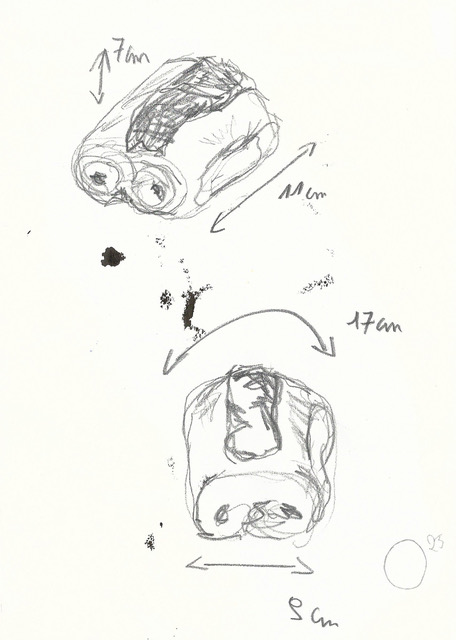 7cm
11cm
17cm
9cm
23